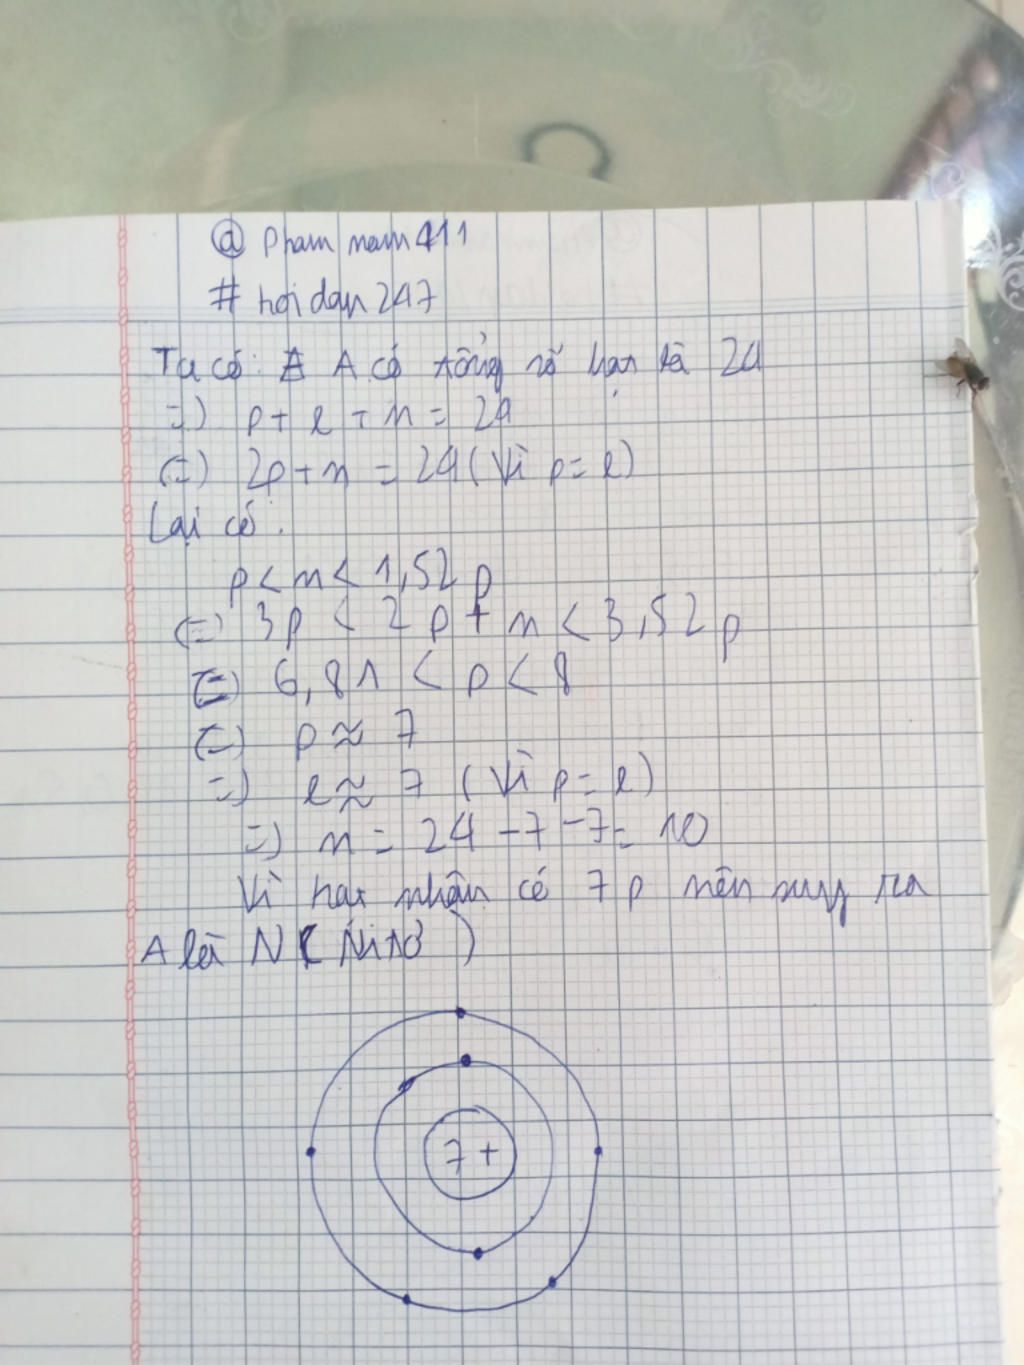 @ Pham nam 411
# hoidap 247
Ta có: A có tổng số hạt là 24
=) p + e + n = 24
(=) 2p + n = 24 (Vì p = e)
Lại có:
p < n < 1,52 p
(=) 3p < 2p + n < 3,52 p
(=) 6,81 < p < 8
(=) p ≈ 7
=) e ≈ 7 (Vì p = e)
=) n = 24 - 7 - 7 = 10
Vì hạt nhân có 7 p nên suy ra
A là N (Nitơ)
7 +